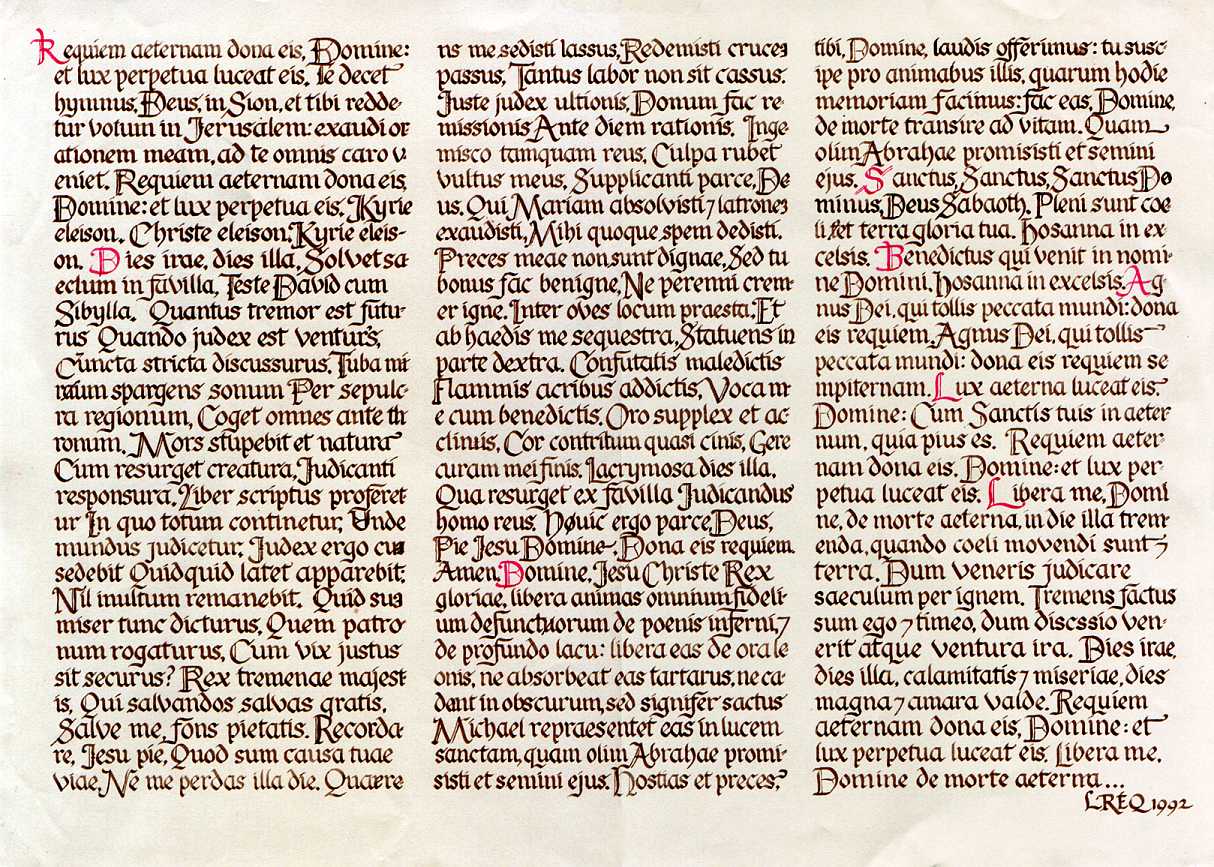 Requiem aeternam dona eis, Domine:
et lux perpetua luceat eis. Te decet
hymnus, Deus, in Sion, et tibi redde-
tur votum in Jerusalem: exaudi or
ationem meam, ad te omnis caro v-
eniet. Requiem aeternam dona eis,
Domine: et lux perpetua eis. Kyrie
eleison. Christe eleison. Kyrie eleis-
on. Dies irae, dies illa, Solvet sa
eclum in favilla, Teste David cum
Sibylla. Quantus tremor est futu-
rus Quando judex est venturs,
Cuncta stricta discussurus. Tuba mi
rum spargens sonum Per sepulc-
ra regionum, Coget omnes ante th
ronum. Mors stupebit et natura
Cum resurget creatura, Judicanti
responsura. Liber scriptus proferet
ur In quo totum continetur, Unde
mundus judicetur. Judex ergo cum
sedebit Quidquid latet apparebit:
Nil inultum remanebit. Quid sum
miser tunc dicturus, Quem patro
num rogaturus, Cum vix justus
sit securus? Rex tremenae majest
is, Qui salvandos salvas gratis,
Salve me, fons pietatis. Recorda-
re, Jesu pie, Quod sum causa tuae
viae, Ne me perdas illa die. Quaere
ns me, sedisti lassus, Redemisti cruces
passus, Tantus labor non sit cassus.
Juste judex ultionis, Donum fac re-
missionis Ante diem rationis. Inge-
misco tamquam reus, Culpa rubet
vultus meus, Supplicanti parce, De
us. Qui Mariam absolvisti ⁊ latrones
exaudisti, Mihi quoque spem dedisti.
Preces meae non sunt dignae, Sed tu
bonus fac benigne, Ne perenni crem-
er igne. Inter oves locum praesta, Et
ab haedis me sequestra, Statuens in
parte dextra. Confutatis maledictis
Flammis acribus addictis, Voca m
e cum benedictis. Oro supplex et ac
clinis, Cor contritum quasi cinis, Gere
curam mei finis. Lacrymosa dies illa,
Qua resurget ex favilla Judicandus
homo reus, Huic ergo parce, Deus,
Pie Jesu Domine, Dona eis requiem.
Amen. Domine, Jesu Christe Rex
gloriae, libera animas omnium fideli-
um defunctuorum de poenis inferni, ⁊
de profundo lacu: libera eas de ora le
onis, ne absorbeat eas tartarus, ne ca-
dant in obscurum, sed signifer sactus
Michael repraesentet eas in lucem
sanctam, quam olim Abrahae promi-
sisti et semini ejus. Hostias et preces
tibi, Domine, laudis offerimus: tu susc-
ipe pro animabus illis, quarum hodie
memoriam facimus: fac eas, Domine,
de morte transire ad vitam. Quam
olim Abrahae promisisti et semini
ejus. Sanctus, Sanctus, Sanctus Do
minus, Deus Sabaoth. Pleni sunt coe
li et terra gloria tua. Hosanna in ex-
celsis. Benedictus qui venit in nomi-
ne Domini, Hosanna in excelsis. Ag-
nus Dei, qui tollis peccata mundi: dona
eis requiem, Agnus Dei, qui tollis
peccata mundi: dona eis requiem se
mpiternam. Lux aeterna luceat eis.
Domine: Cum Sanctis tuis in aeter
num, quia pius es. Requiem aeter-
nam dona eis, Domine: et lux per-
petua luceat eis. Libera me, Domi
ne, de morte aeterna, in die illa trem-
enda, quando coeli movendi sunt ⁊
terra. Dum veneris judicare
saeculum per ignem. Tremens factus
sum ego ⁊ timeo, dum discssio ven-
erit atque ventura ira. Dies irae,
dies illa, calamitatis ⁊ miseriae, dies
magna ⁊ amara valde. Requiem
aeternam dona eis, Domine: et
lux perpetua luceat eis. Libera me,
Domine de morte aeterna...
LREQ 1992